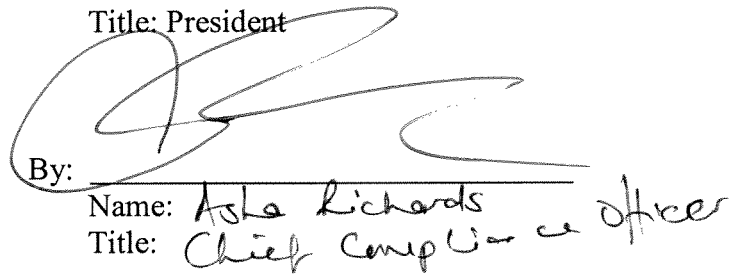 Title: President
By:
Name: Asha Richards
Title: Chief Compliance Officer